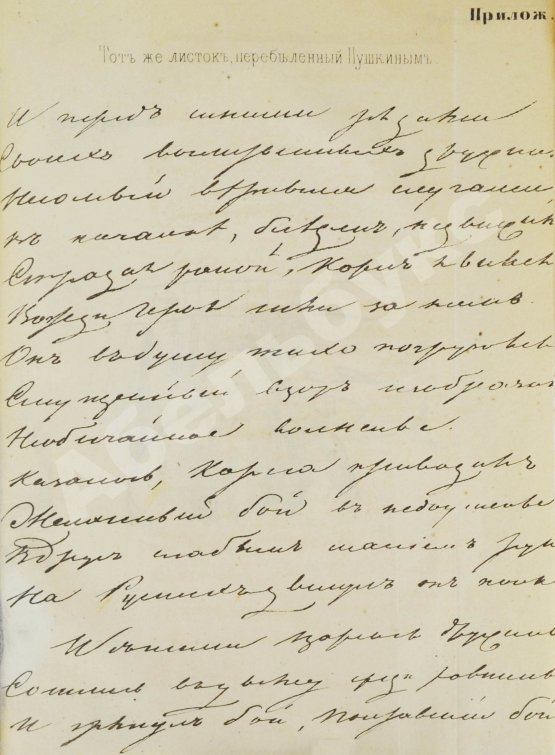 Прилож.
Тотъ же листокъ, перебѣленный Пушкинымъ.
И передъ синими рядами
Своихъ воинственныхъ дружин
Несомый вѣрными слугами
Въ качалкѣ, блѣденъ, недвижим
Страдая раной, Карлъ явился
Вожди героя шли за нимъ.
Онъ въ думу тихо погрузился
Смущенный взоръ изобразил
Необычайное волненье.
Казалось, Карла приводилъ
Желанный бой въ недоуменье
Вдругъ слабымъ маніемъ руки
На Русскихъ двинулъ онъ полк
И съ ними царскія дружины
Сошлись въ дыму среди равнины
И грянулъ бой, Полтавскій бой
Абельбукс